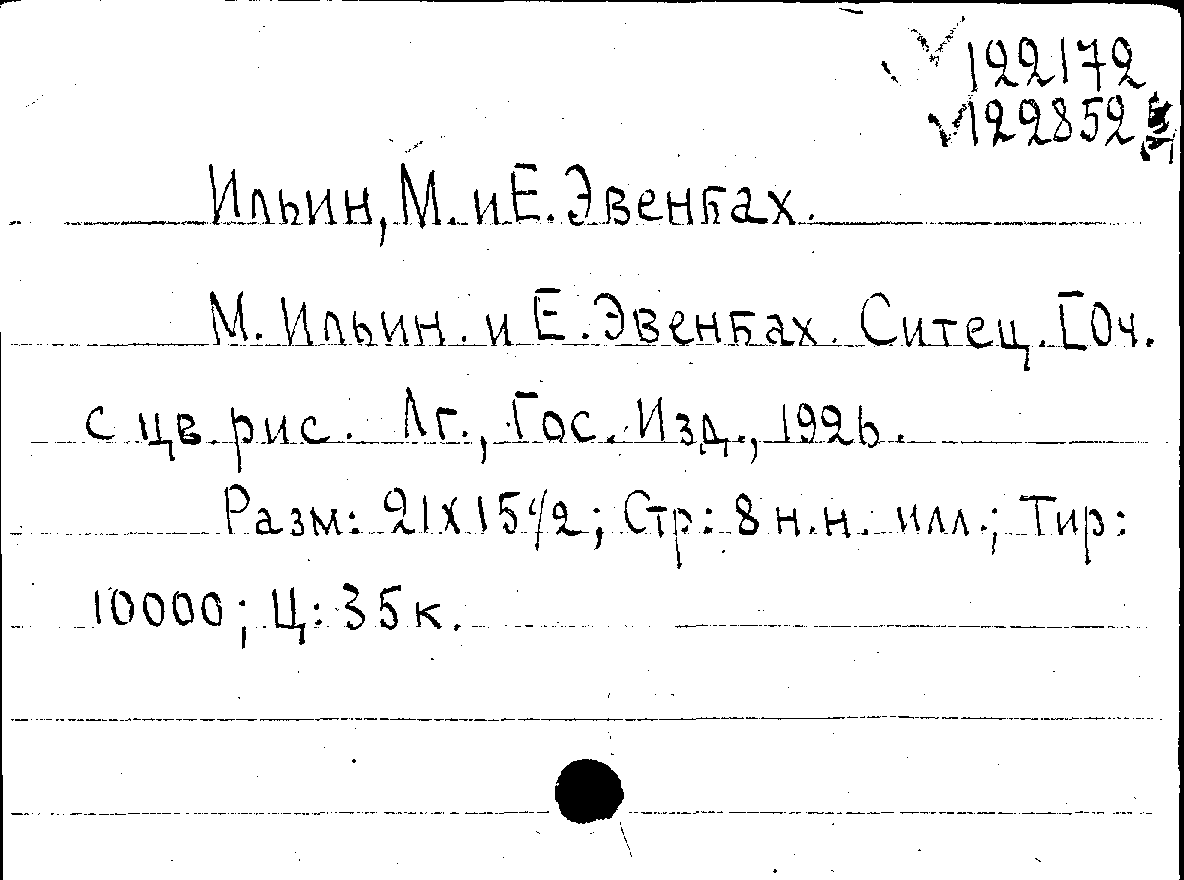 122172
122852
Ильин, М. и Е. Эвенбах.
М. Ильин. и Е. Эвенбах. Ситец. [Оч.
с цв. рис. Лг., Гос. Изд., 1926.
Разм: 21х15 1/2; Стр: 8 н.н. илл.; Тир:
10000; Ц: 35 к.